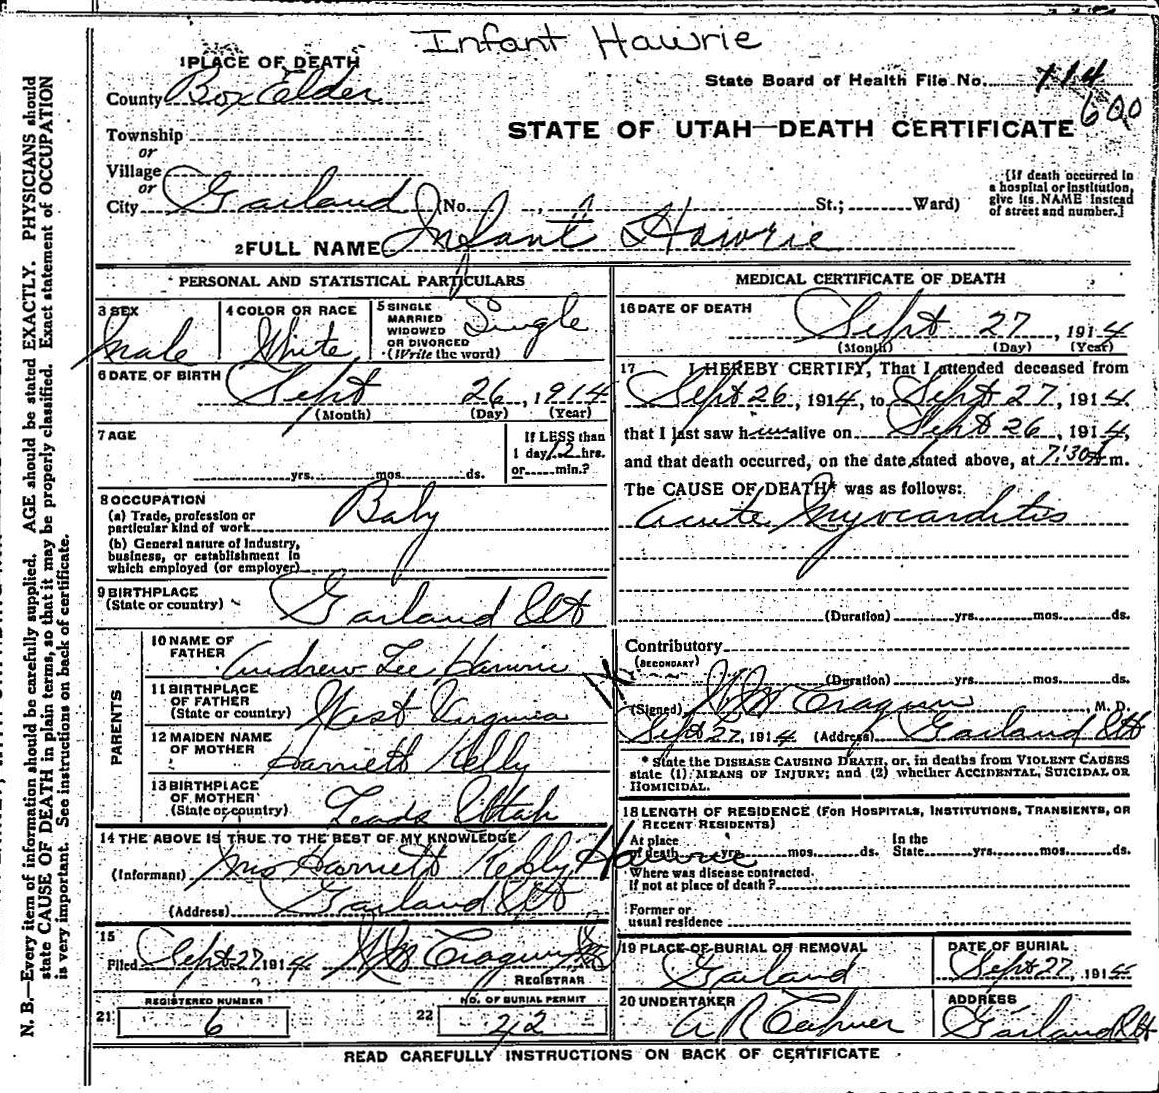 Infant Hawrie
1 PLACE OF DEATH
County Box Elder
State Board of Health File No. 114
600
STATE OF UTAH—DEATH CERTIFICATE
Township
or
Village
or
City Garland (No. , St.; Ward)
[If death occurred in
a hospital or institution,
give its NAME instead
of street and number.]
2 FULL NAME Infant Hawrie
PERSONAL AND STATISTICAL PARTICULARS
3 SEX
male
4 COLOR OR RACE
White
5 SINGLE
MARRIED
WIDOWED
OR DIVORCED
(Write the word)
Single
6 DATE OF BIRTH
Sept 26, 1914
(Month) (Day) (Year)
7 AGE
yrs. mos. ds.
If LESS than
1 day, 12 hrs.
or min.?
8 OCCUPATION
(a) Trade, profession or
particular kind of work
Baby
(b) General nature of industry,
business, or establishment in
which employed (or employer)
9 BIRTHPLACE
(State or country)
Garland Ut
PARENTS
10 NAME OF
FATHER
Andrew Lee Hawrie
11 BIRTHPLACE
OF FATHER
(State or country)
West Virginia
12 MAIDEN NAME
OF MOTHER
Harriett Kelly
13 BIRTHPLACE
OF MOTHER
(State or country)
Leads Utah
14 THE ABOVE IS TRUE TO THE BEST OF MY KNOWLEDGE
(Informant) Mrs Harriett Kelly Hawrie
(Address) Garland Ut
15
Filed Sept 27 1914 WM Cragun
REGISTRAR
REGISTERED NUMBER
21 6
NO. OF BURIAL PERMIT
22 22
MEDICAL CERTIFICATE OF DEATH
16 DATE OF DEATH
Sept 27, 1914
(Month) (Day) (Year)
17 I HEREBY CERTIFY, That I attended deceased from
Sept 26, 1914, to Sept 27, 1914
that I last saw him alive on Sept 26, 1914,
and that death occurred, on the date stated above, at 7:30 A m.
The CAUSE OF DEATH* was as follows:
Acute Myocarditis
(Duration) yrs. mos. ds.
Contributory
(SECONDARY)
(Duration) yrs. mos. ds.
(Signed) WM Cragun, M. D.
Sept 27, 1914 (Address) Garland Ut
* State the DISEASE CAUSING DEATH, or, in deaths from VIOLENT CAUSES
state (1) MEANS OF INJURY; and (2) whether ACCIDENTAL, SUICIDAL OR
HOMICIDAL.
18 LENGTH OF RESIDENCE (FOR HOSPITALS, INSTITUTIONS, TRANSIENTS, OR
RECENT RESIDENTS)
At place
of death yrs. mos. ds.
In the
State yrs. mos. ds.
Where was disease contracted.
If not at place of death?
Former or
usual residence
19 PLACE OF BURIAL OR REMOVAL
Garland
DATE OF BURIAL
Sept 27, 1914
20 UNDERTAKER
ADDRESS
Garland Ut
READ CAREFULLY INSTRUCTIONS ON BACK OF CERTIFICATE
N. B.—Every item of information should be carefully supplied. AGE should be stated EXACTLY. PHYSICIANS should
state CAUSE OF DEATH in plain terms, so that it may be properly classified. Exact statement of OCCUPATION
is very important. See instructions on back of certificate.